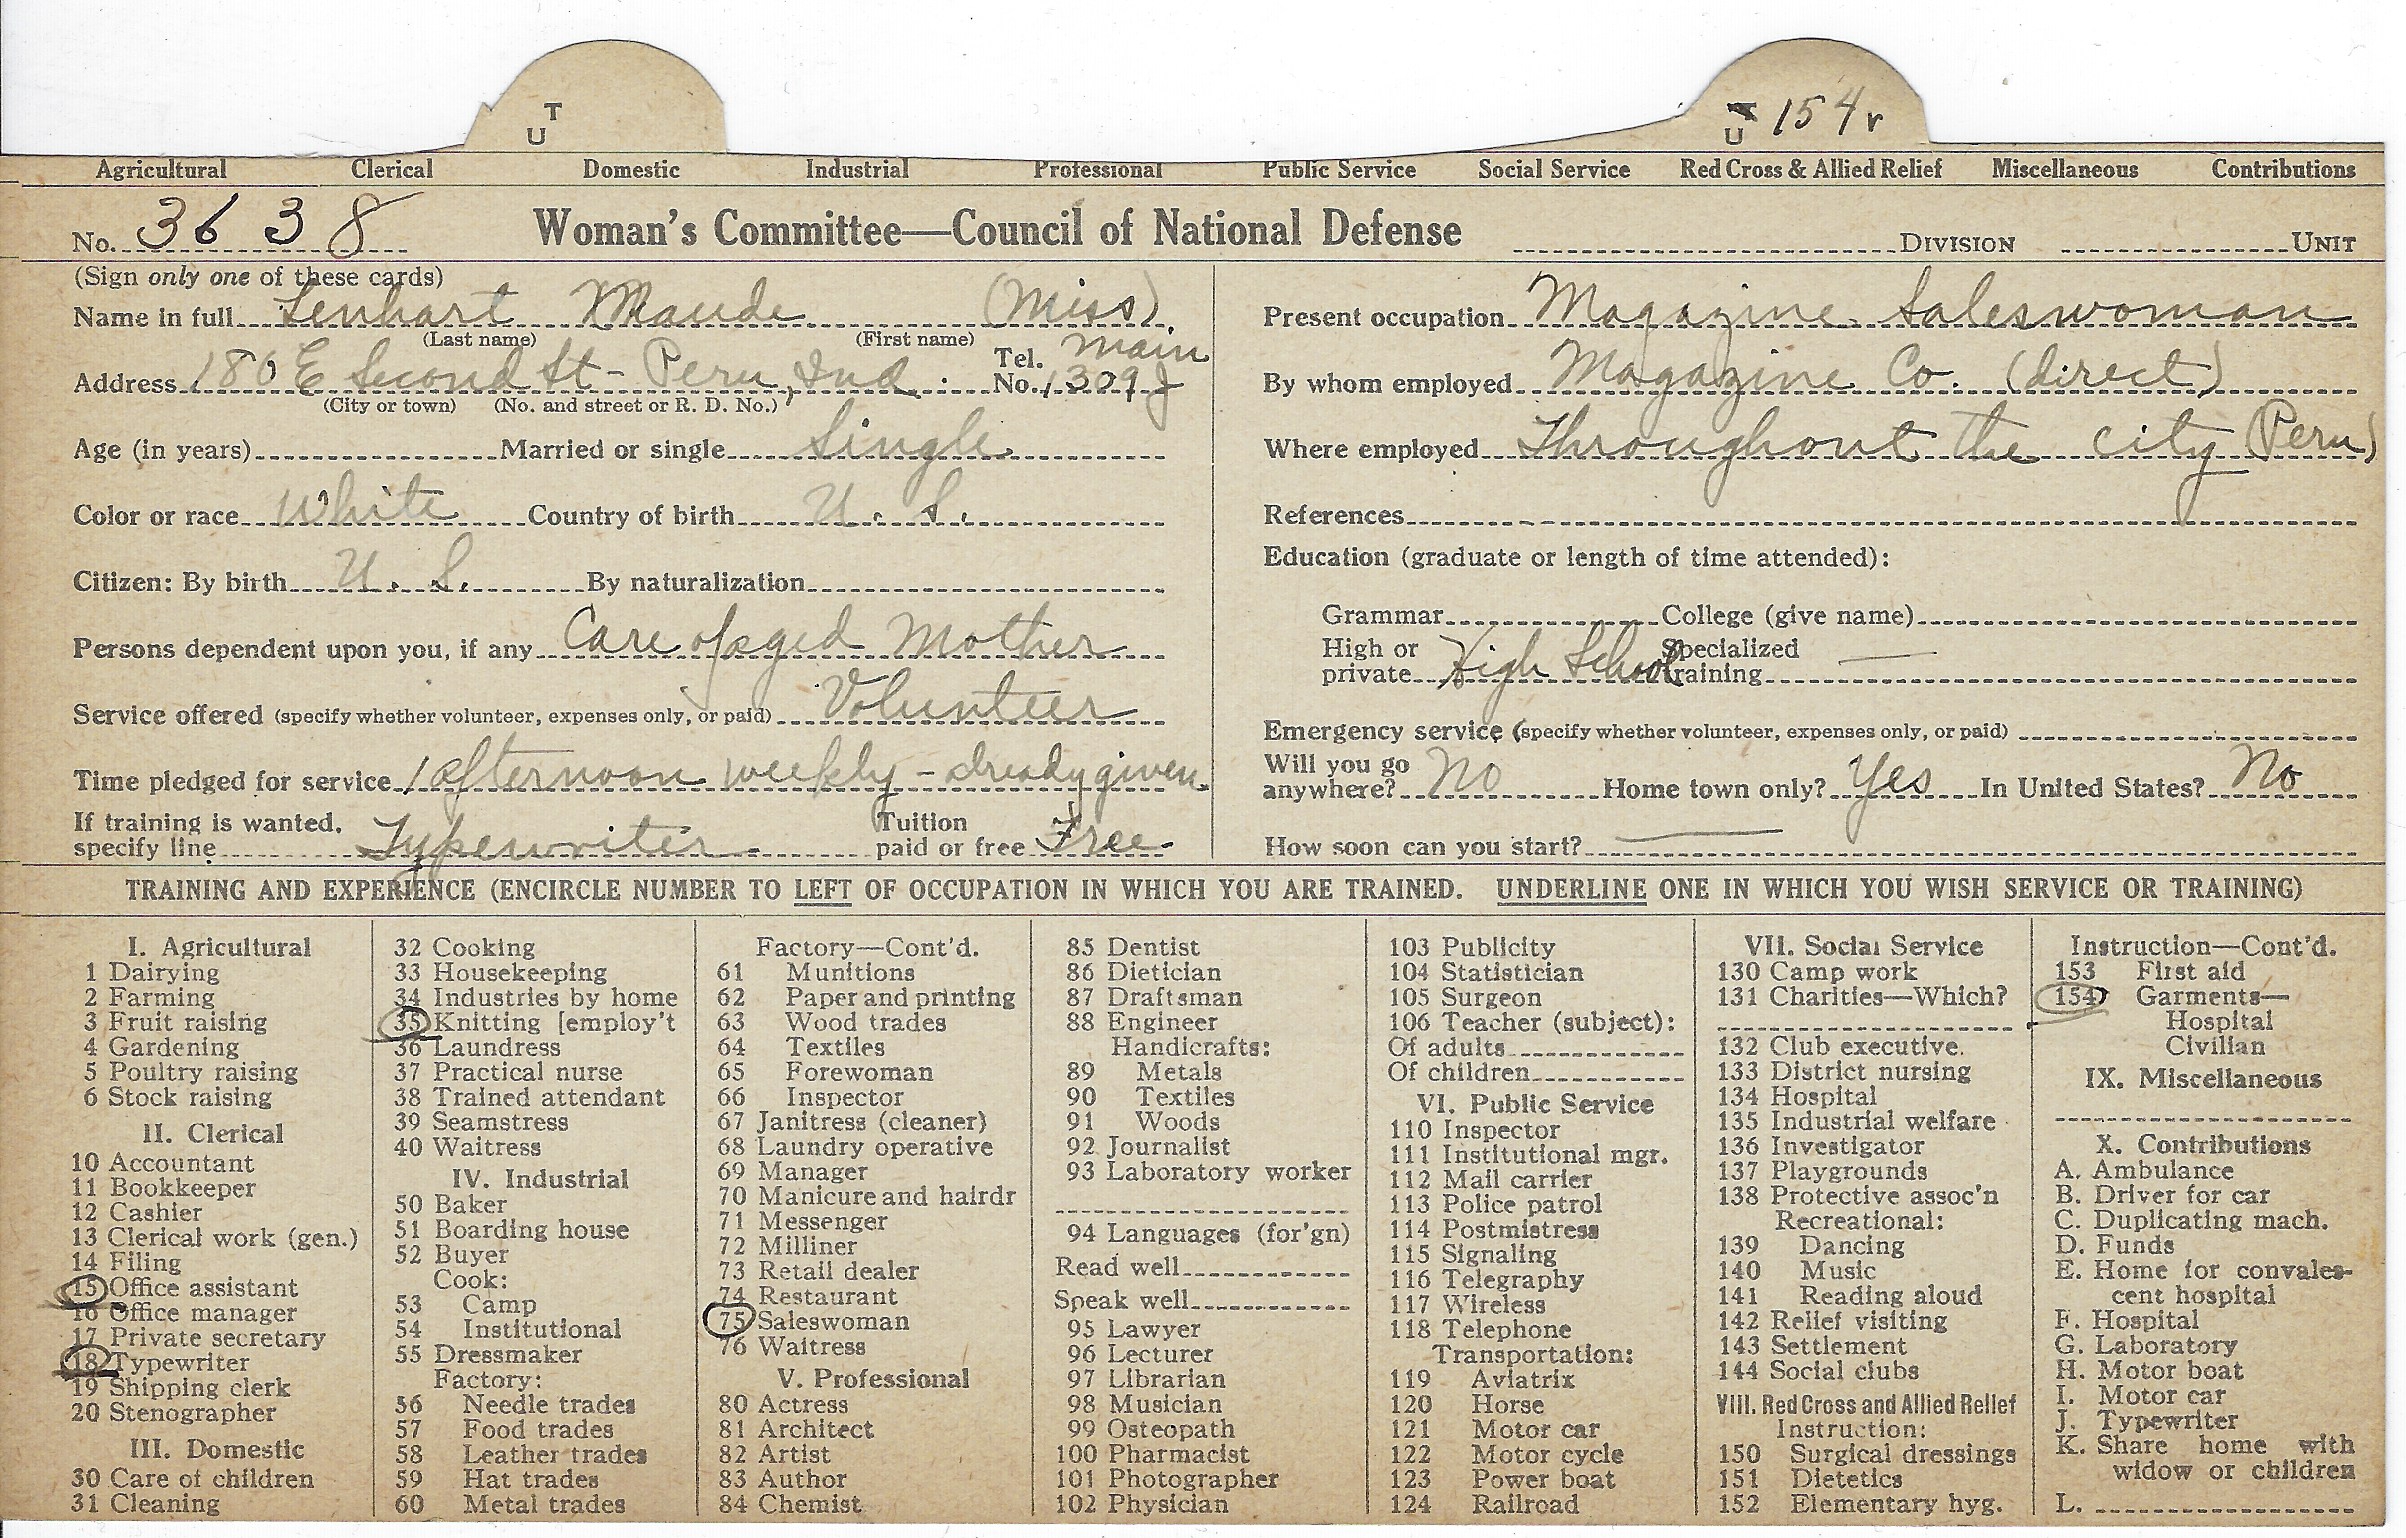 T
U
U 154 v
Agricultural Clerical Domestic Industrial Professional Public Service Social Service Red Cross & Allied Relief Miscellaneous Contributions
No. 3638 Woman's Committee—Council of National Defense DIVISION UNIT
(Sign only one of these cards)
Name in full Lenhart Maude (Miss)
(Last name) (First name)
Address 180 E Second St - Peru, Ind. Tel. No. Main 1309 J
(City or town) (No. and street or R. D. No.)
Age (in years) Married or single Single
Color or race White Country of birth U. S.
Citizen: By birth U. S. By naturalization
Persons dependent upon you, if any Care of aged Mother
Service offered (specify whether volunteer, expenses only, or paid) Volunteer
Time pledged for service 1 afternoon weekly - already given
If training is wanted, specify line Typewriter Tuition paid or free Free
Present occupation Magazine Saleswoman
By whom employed Magazine Co. (direct)
Where employed Throughout the city (Peru)
References
Education (graduate or length of time attended):
Grammar College (give name)
High or private High School Specialized training —
Emergency service (specify whether volunteer, expenses only, or paid)
Will you go anywhere? No Home town only? Yes In United States? No
How soon can you start? —
TRAINING AND EXPERIENCE (ENCIRCLE NUMBER TO LEFT OF OCCUPATION IN WHICH YOU ARE TRAINED. UNDERLINE ONE IN WHICH YOU WISH SERVICE OR TRAINING)
I. Agricultural
1 Dairying
2 Farming
3 Fruit raising
4 Gardening
5 Poultry raising
6 Stock raising
II. Clerical
10 Accountant
11 Bookkeeper
12 Cashier
13 Clerical work (gen.)
14 Filing
15 Office assistant
16 Office manager
17 Private secretary
18 Typewriter
19 Shipping clerk
20 Stenographer
III. Domestic
30 Care of children
31 Cleaning
32 Cooking
33 Housekeeping
34 Industries by home
35 Knitting [employ't
36 Laundress
37 Practical nurse
38 Trained attendant
39 Seamstress
40 Waitress
IV. Industrial
50 Baker
51 Boarding house
52 Buyer
Cook:
53 Camp
54 Institutional
55 Dressmaker
Factory:
56 Needle trades
57 Food trades
58 Leather trades
59 Hat trades
60 Metal trades
Factory—Cont'd.
61 Munitions
62 Paper and printing
63 Wood trades
64 Textiles
65 Forewoman
66 Inspector
67 Janitress (cleaner)
68 Laundry operative
69 Manager
70 Manicure and hairdr
71 Messenger
72 Milliner
73 Retail dealer
74 Restaurant
75 Saleswoman
76 Waitress
V. Professional
80 Actress
81 Architect
82 Artist
83 Author
84 Chemist
85 Dentist
86 Dietician
87 Draftsman
88 Engineer
Handicrafts:
89 Metals
90 Textiles
91 Woods
92 Journalist
93 Laboratory worker
94 Languages (for'gn)
Read well
Speak well
95 Lawyer
96 Lecturer
97 Librarian
98 Musician
99 Osteopath
100 Pharmacist
101 Photographer
102 Physician
103 Publicity
104 Statistician
105 Surgeon
106 Teacher (subject):
Of adults
Of children
VI. Public Service
110 Inspector
111 Institutional mgr.
112 Mail carrier
113 Police patrol
114 Postmistress
115 Signaling
116 Telegraphy
117 Wireless
118 Telephone
Transportation:
119 Aviatrix
120 Horse
121 Motor car
122 Motor cycle
123 Power boat
124 Railroad
VII. Social Service
130 Camp work
131 Charities—Which?
132 Club executive.
133 District nursing
134 Hospital
135 Industrial welfare
136 Investigator
137 Playgrounds
138 Protective assoc'n
Recreational:
139 Dancing
140 Music
141 Reading aloud
142 Relief visiting
143 Settlement
144 Social clubs
VIII. Red Cross and Allied Relief
Instruction:
150 Surgical dressings
151 Dietetics
152 Elementary hyg.
Instruction—Cont'd.
153 First aid
154 Garments—
Hospital
Civilian
IX. Miscellaneous
X. Contributions
A. Ambulance
B. Driver for car
C. Duplicating mach.
D. Funds
E. Home for convales-
cent hospital
F. Hospital
G. Laboratory
H. Motor boat
I. Motor car
J. Typewriter
K. Share home with
widow or children
L.